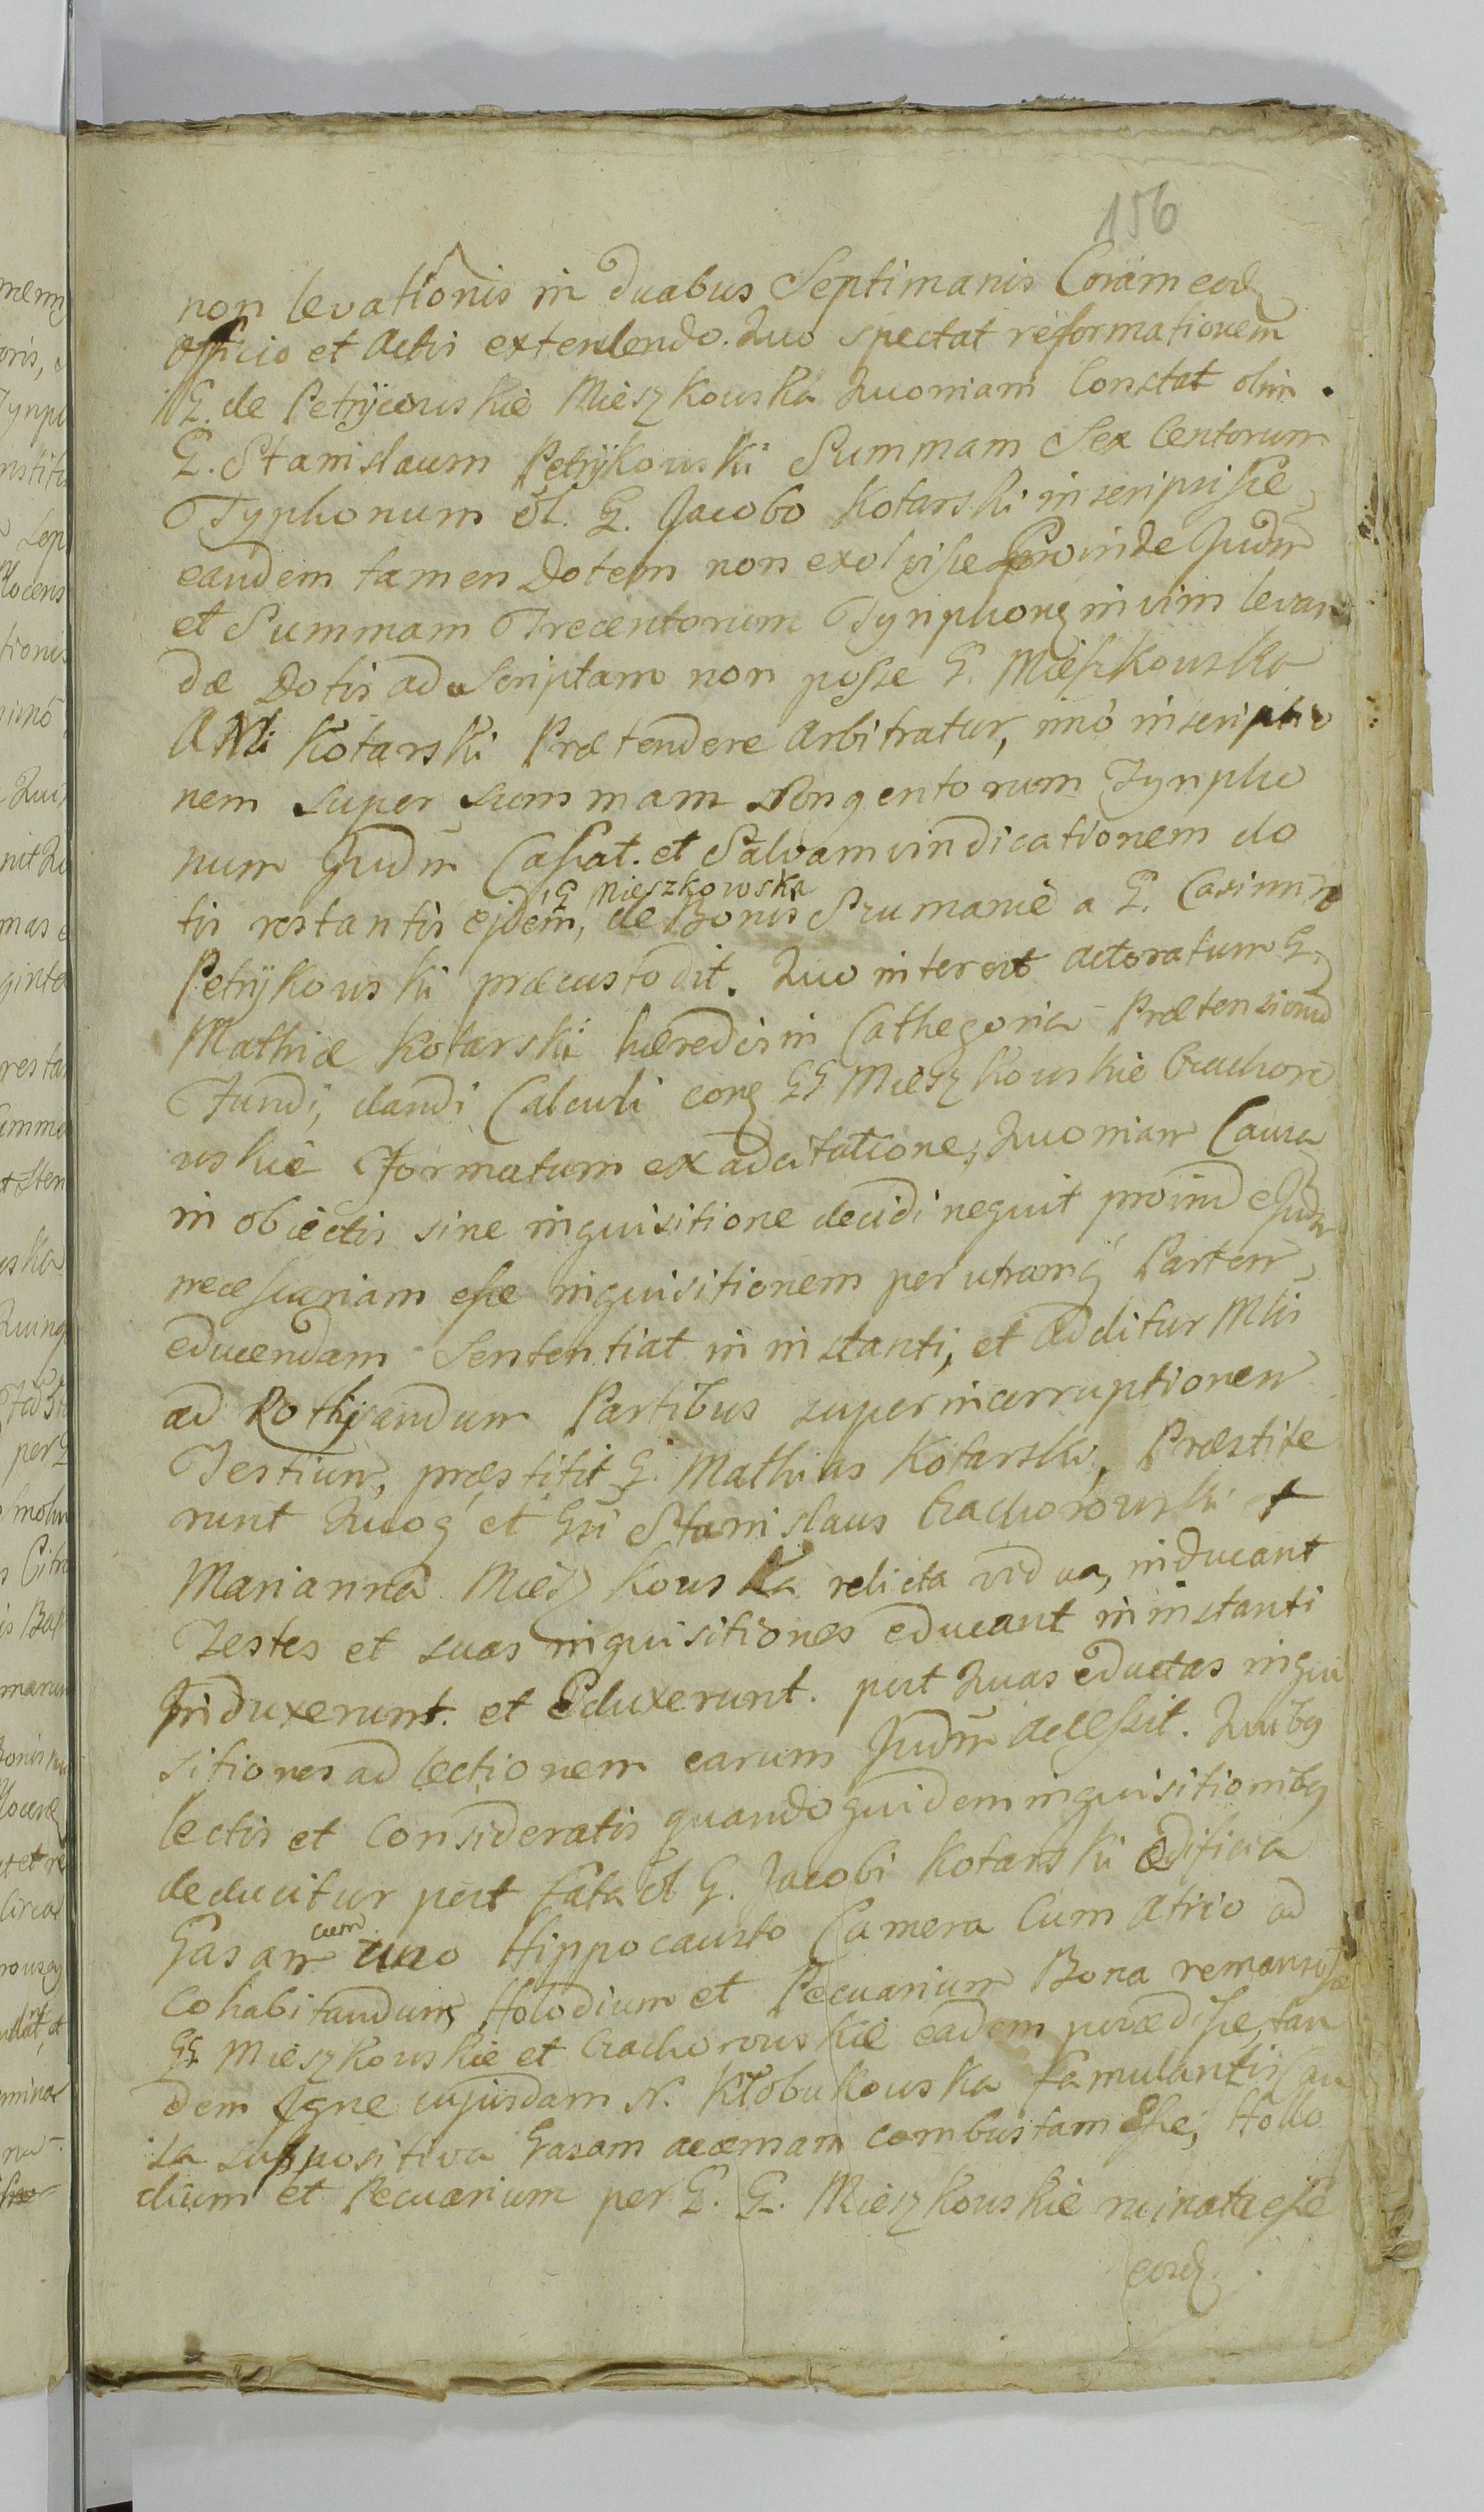 156
non levationis in duabus Septimanis Coram eod
officio et Actis extendendo. Quo spectat reformationem
G. de Petrÿkowskie Mieszkowska Quoniam Constat olim
G. Stanislaum Petrÿkowski Summam Sex Centorum
Tynphonum ol. G. Jacobo Kotarski inscripsisse
eandem tamen Dotem non exolvisse Proinde Judm
et Summam Trecentorum Tynphonq in vim levan
dæ Dotis ad Scriptam non posse G. Mieszkowska
A Mli Kotarski Prætendere Arbitratur, imò inscriptio
nem super summam Nongentorum Tynpho
num Judm Cassat. et Salvam vindicationem do
tis restantis ejdem, G Mieszkowska de Bonis Szumanie a G. Casimiro
Petrÿkowski præcustodit. Quo intereat Actoratum G.
Mathiæ Kotarski hæredis in Cathegoria Prætensionũ
Fundi, dandi Calculi corq GG Mieszkowskie Crachoro
wskie Formatum ex adcitatione, Quoniam Causa
in objectis sine inquisitione decidi nequit proinde Judm
necessariam esse inquisitionem per utramq Partem
educendam Sententiat in instanti, et additur Mlis
ad Rothÿzandum Partibus super incorruptionem
Testium, præstitit G. Mathias Kotarski, Præstite
runt Quoq et Gsi Stanislaus Crachorowski et
Marianna Mieszkowska relicta vidua, inducant
Testes et suas inquisitiones educant in instanti
Induxerunt. et Eduxerunt. post Quas eductas inqui
sitiones ad lectionem earum Judm accessit. Quibq
lectis et Consideratis quandoquidem inquisitionibq
deducitur post fata ol G. Jacobi Kotarski ædificia
Gasam cum uno Hippocausto Camera Cum Atrio ad
Cohabitandum, Holodium et Pecuarium Bona remansisse
GG Mieszkowskie et Crachorowskie eadem possedisse, tan
dem Igne cujusdam N. Kłobukowska famulantis cau
sa suppositiva Gasam acæmam combustam Esse, Hollo
dium et Pecuarium per G. G. Mieszkowskie ruinata esse
eosd.